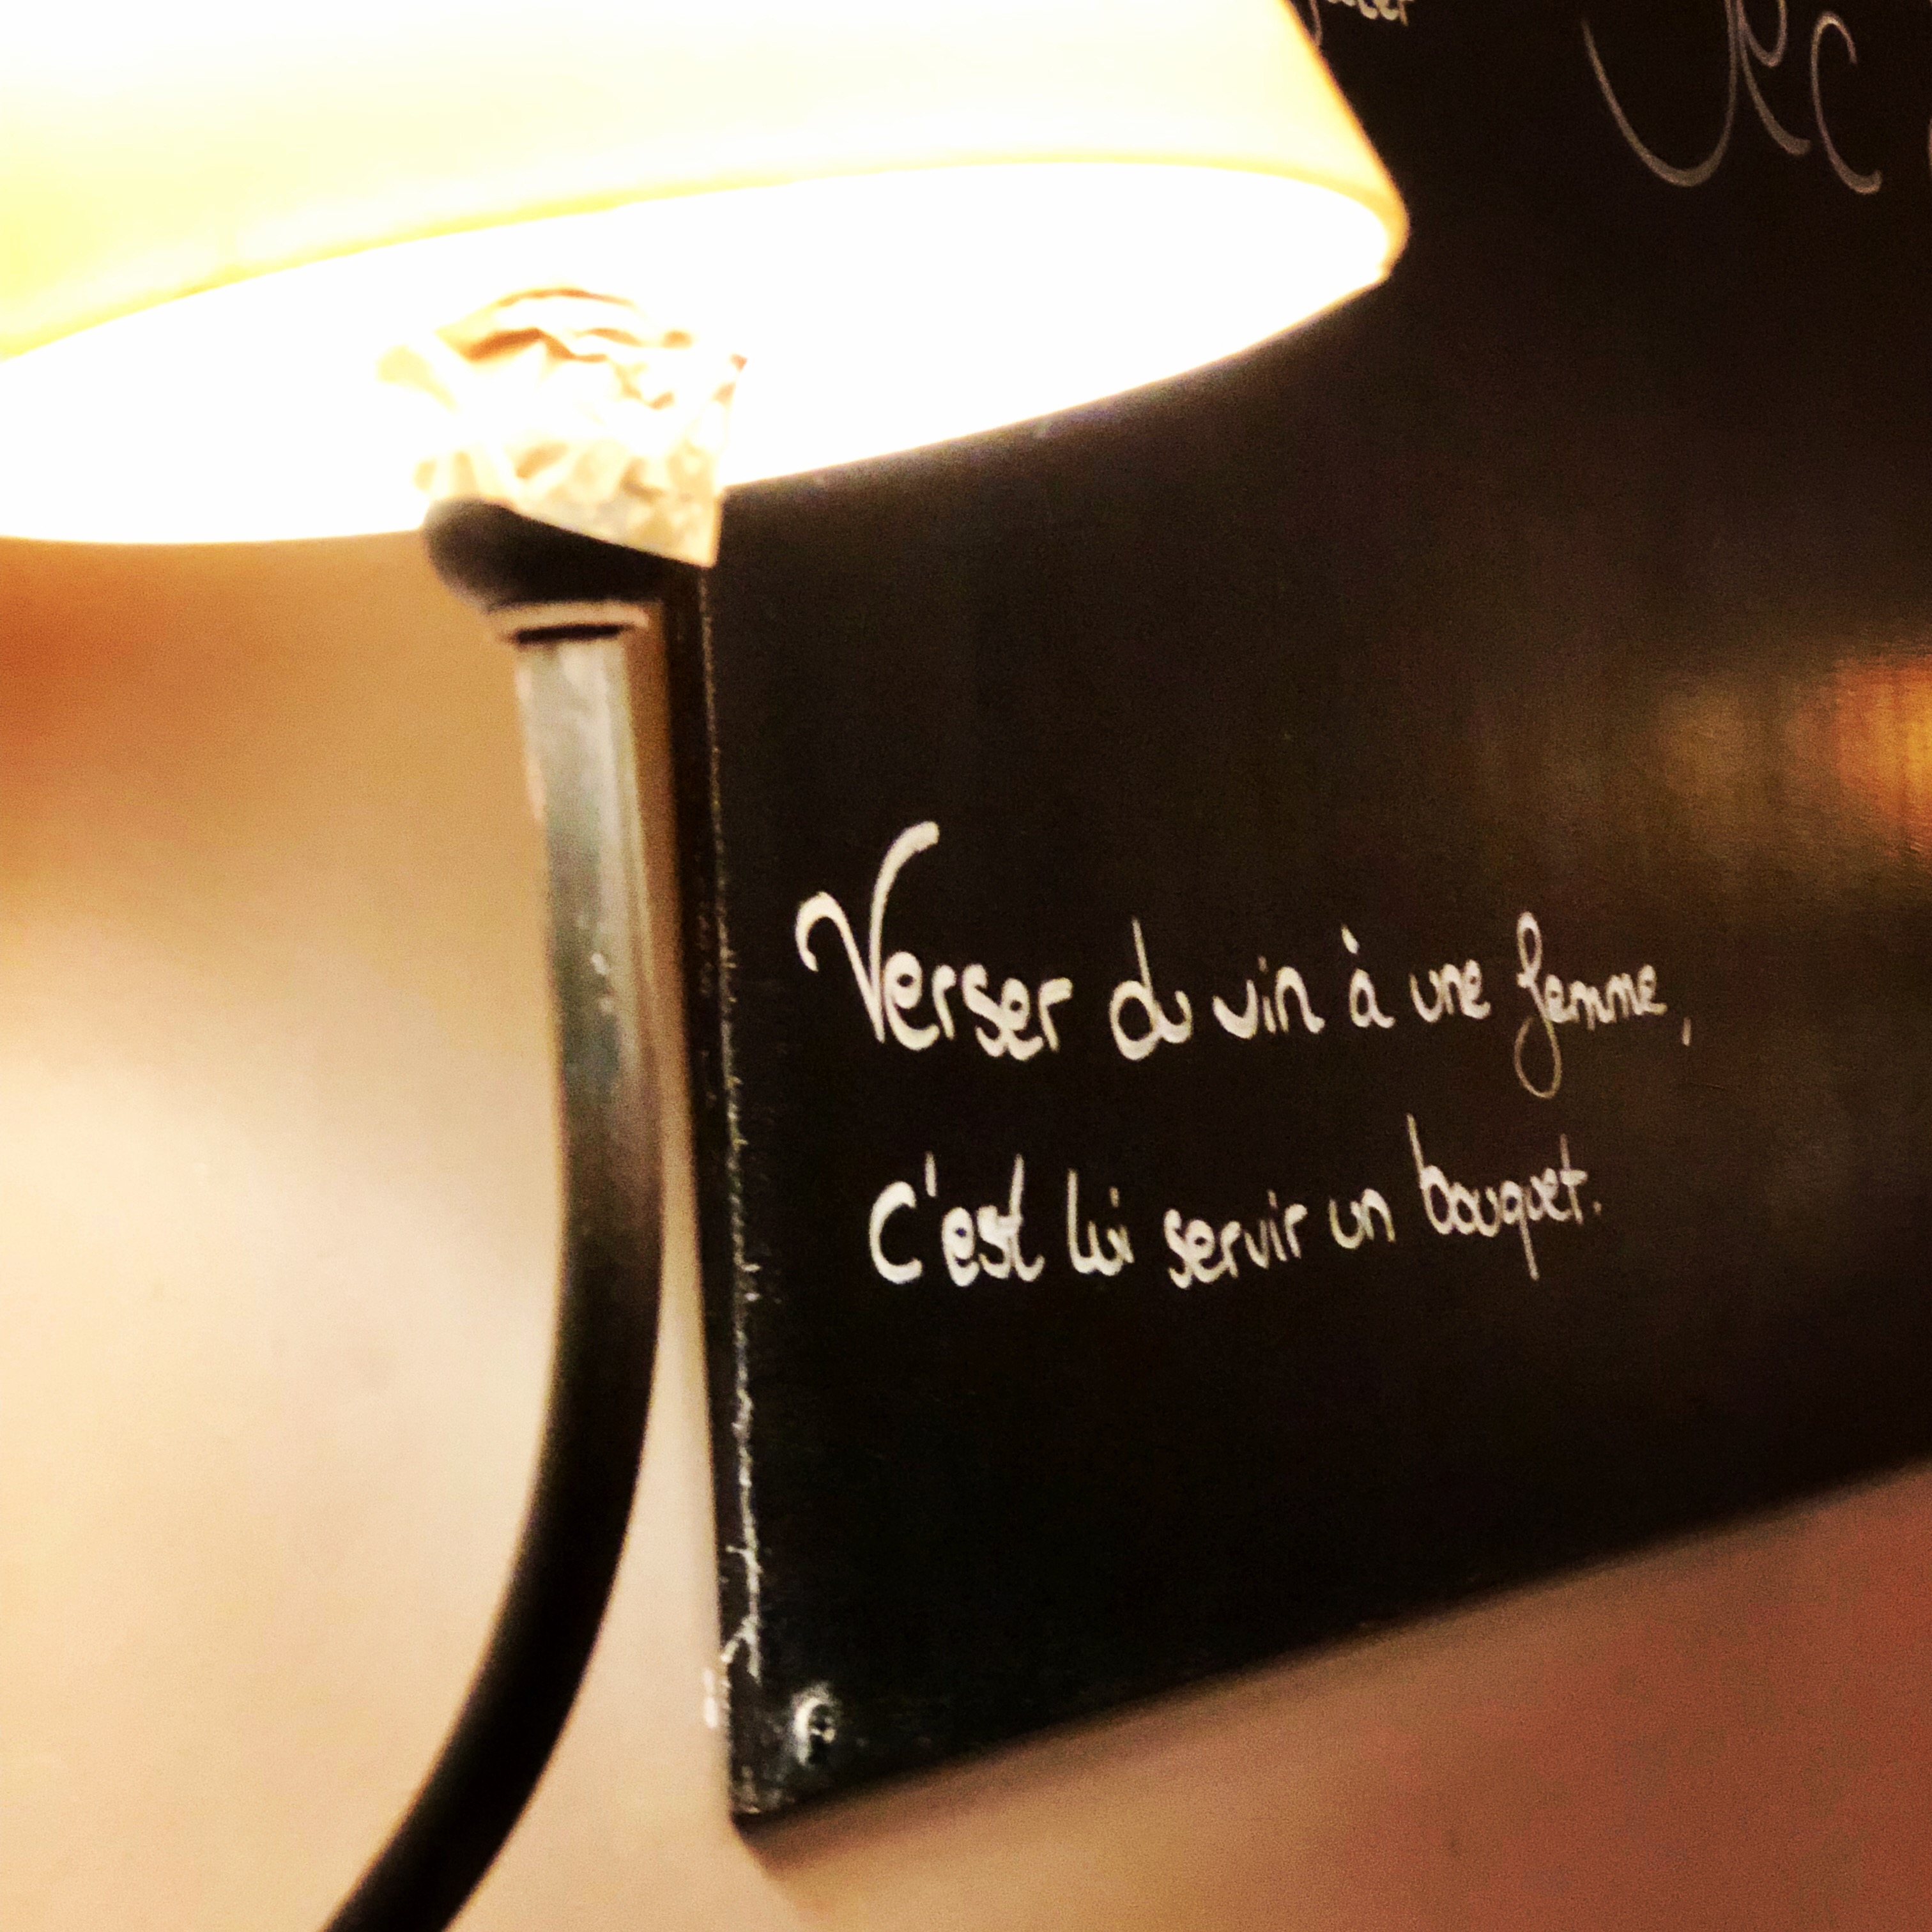 Verser du vin à une femme,
c'est lui servir un bouquet.